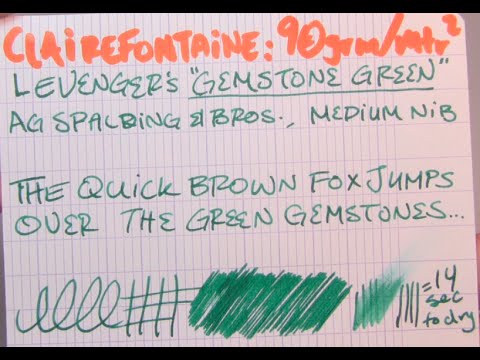 CLAIREFONTAINE: 90grm/mtr²
LEVENGER'S "GEMSTONE GREEN"
AG SPALDING & BROS., MEDIUM NIB
THE QUICK BROWN FOX JUMPS
OVER THE GREEN GEMSTONES...
=14
sec
to dry